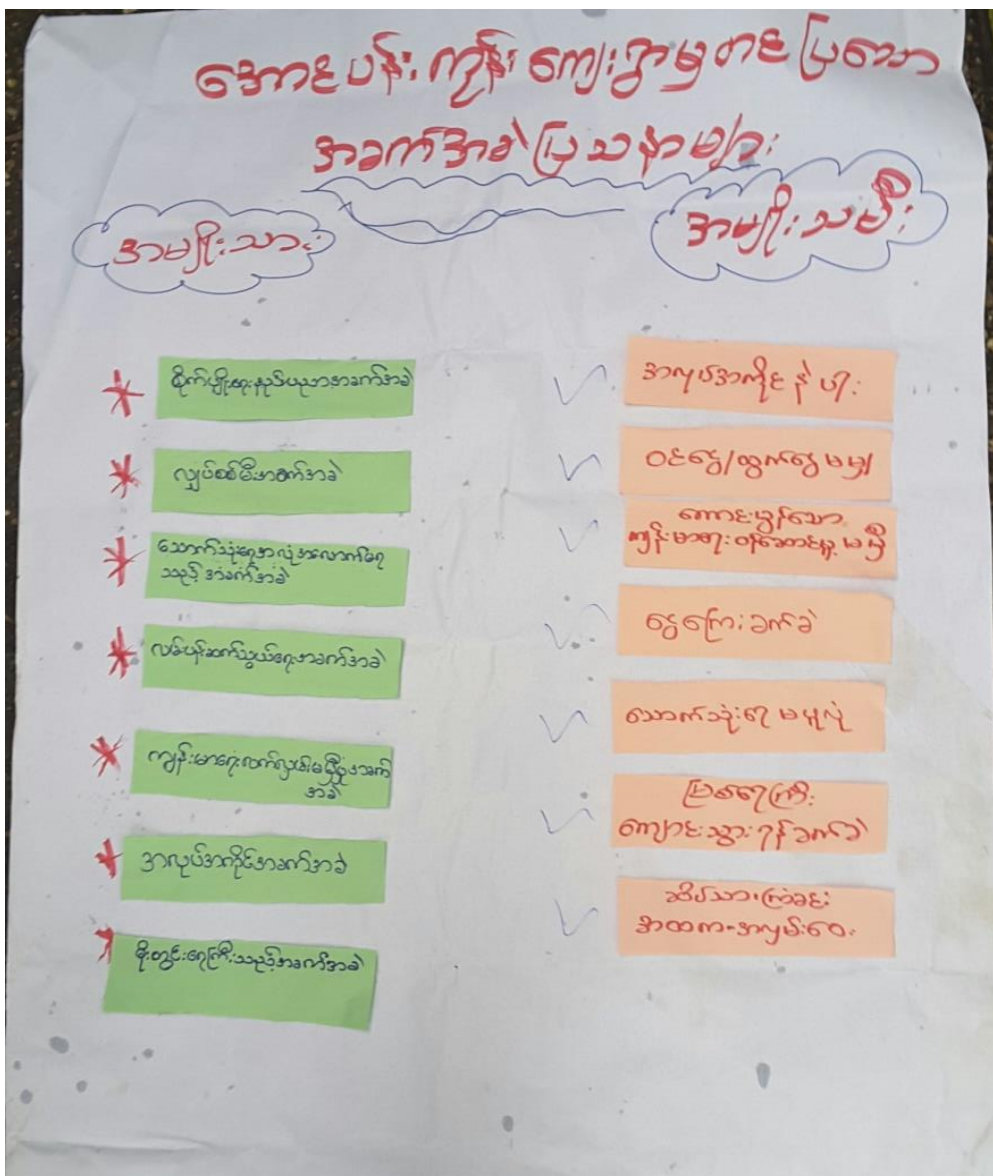 အောင်ပန်းကုန်းကျေးရွာမှတင်ပြသော
အခက်အခဲပြဿနာများ
အမျိုးသား
အမျိုးသမီး
စိုက်ပျိုးရေးနည်းပညာအခက်အခဲ
လျှပ်စစ်မီးအခက်အခဲ
သောက်သုံးရေအလုံအလောက်မရ
သည့်အခက်အခဲ
လမ်းပန်းဆက်သွယ်ရေးအခက်အခဲ
ကျန်းမာရေးလက်လှမ်းမမှီမှုအခက်
အခဲ
အလုပ်အကိုင်အခက်အခဲ
မိုးတွင်းရေကြီးသည့်အခက်အခဲ
အလုပ်အကိုင်နဲပါး
ဝင်ငွေ/ထွက်ငွေမမျှ
ကောင်းမွန်သော
ကျန်းမာရေးဝန်ဆောင်မှုမရှိ
ငွေကြေးခက်ခဲ
သောက်သုံးရေမမူလုံ
မြစ်ရေကြီး
ကျောင်းသွားရန်ခက်ခဲ
ဆိပ်သာ၊ကြံခင်း
အထက-အလှမ်းဝေး